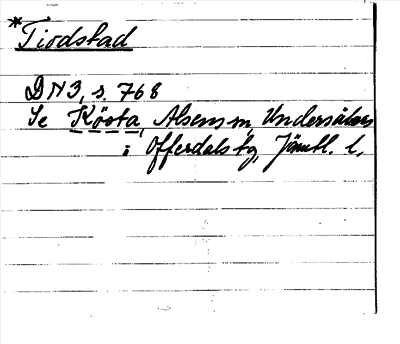 *Tiodstad
DN 3, s. 768
Se Kösta, Alsens sn, Undersåkers
i Offerdals tg, Jämtl. l.